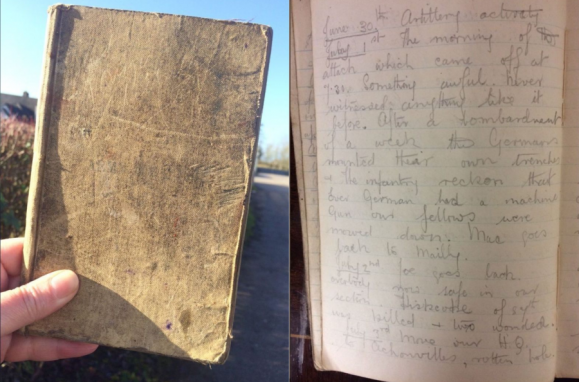 June 30th Artillery activity
July 1st The morning of the
attack which came off at
7-30. Something awful. Never
witnessed anything like it
before. After a bombardment
of a week the Germans
mounted their own trench
& the infantry reckon that
every German had a machine
gun our fellows were
mowed down. Mac goes
back to Mailly.
July 2nd Joe goes back.
nobody now safe in our
section. Thirkettle of
was killed & two wounded.
July 3rd Move our H.Q.
to Auchonvilles, rotten hole